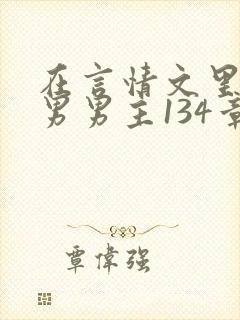 在言情文里
男男主134章
覃偉强